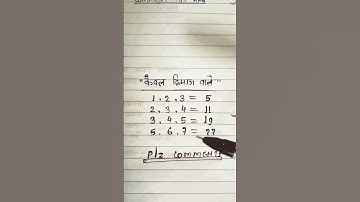 "केवल दिमाग वाले"
1.2.3 = 5
2.3.4 = 11
3.4.5 = 19
5.6.7 = ??
plz comment